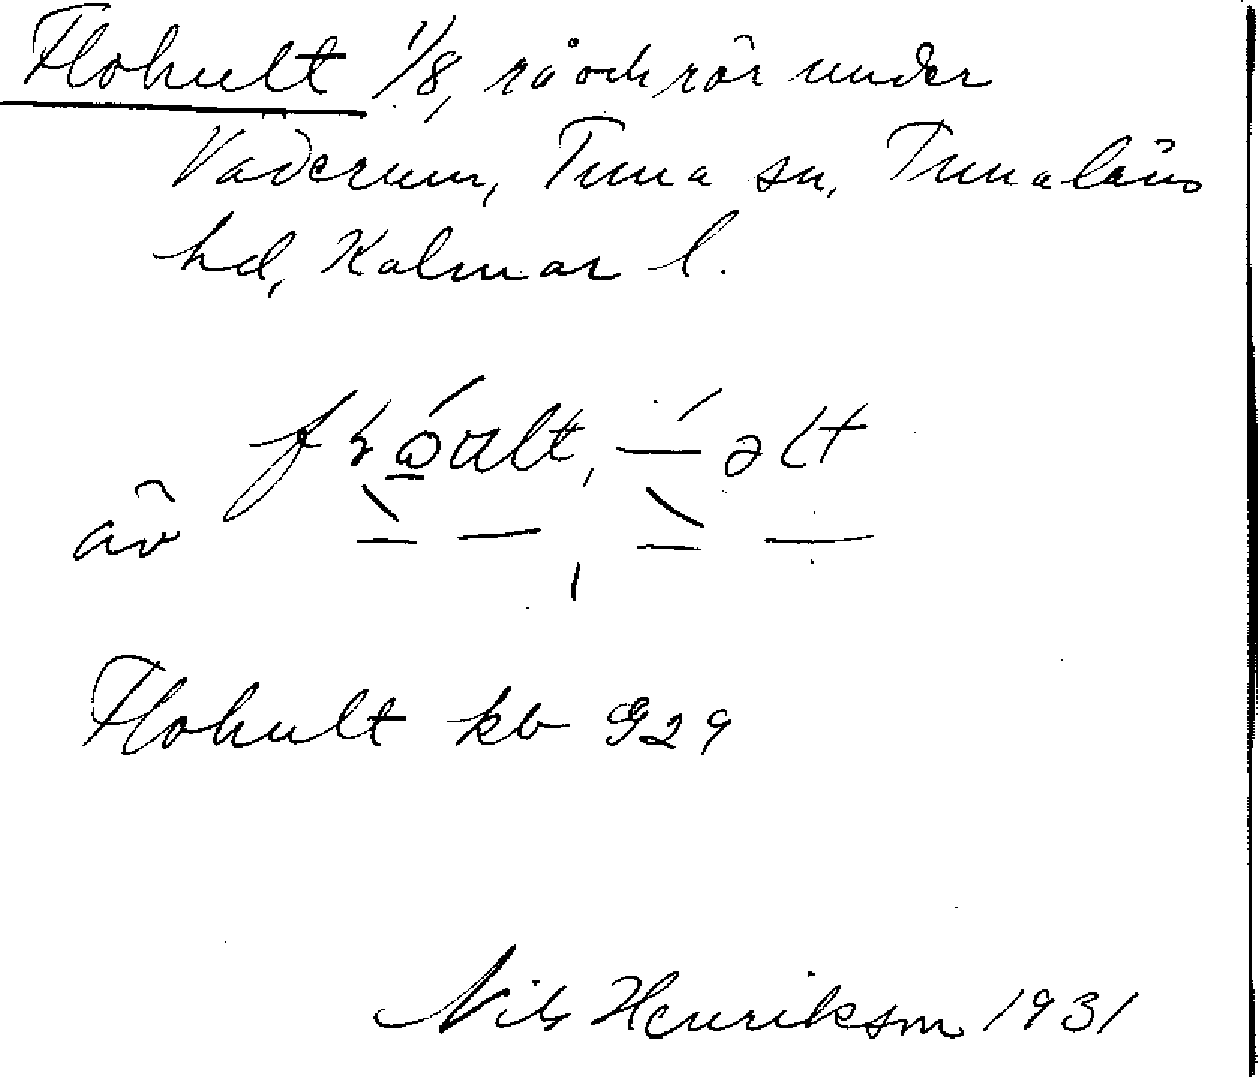 Flohult 1/8, rå och rör under
Vaderum, Tuna sn, Tunaläns
hd, Kalmar l.
av
Flohult kb 929
Nils Henrikson 1931